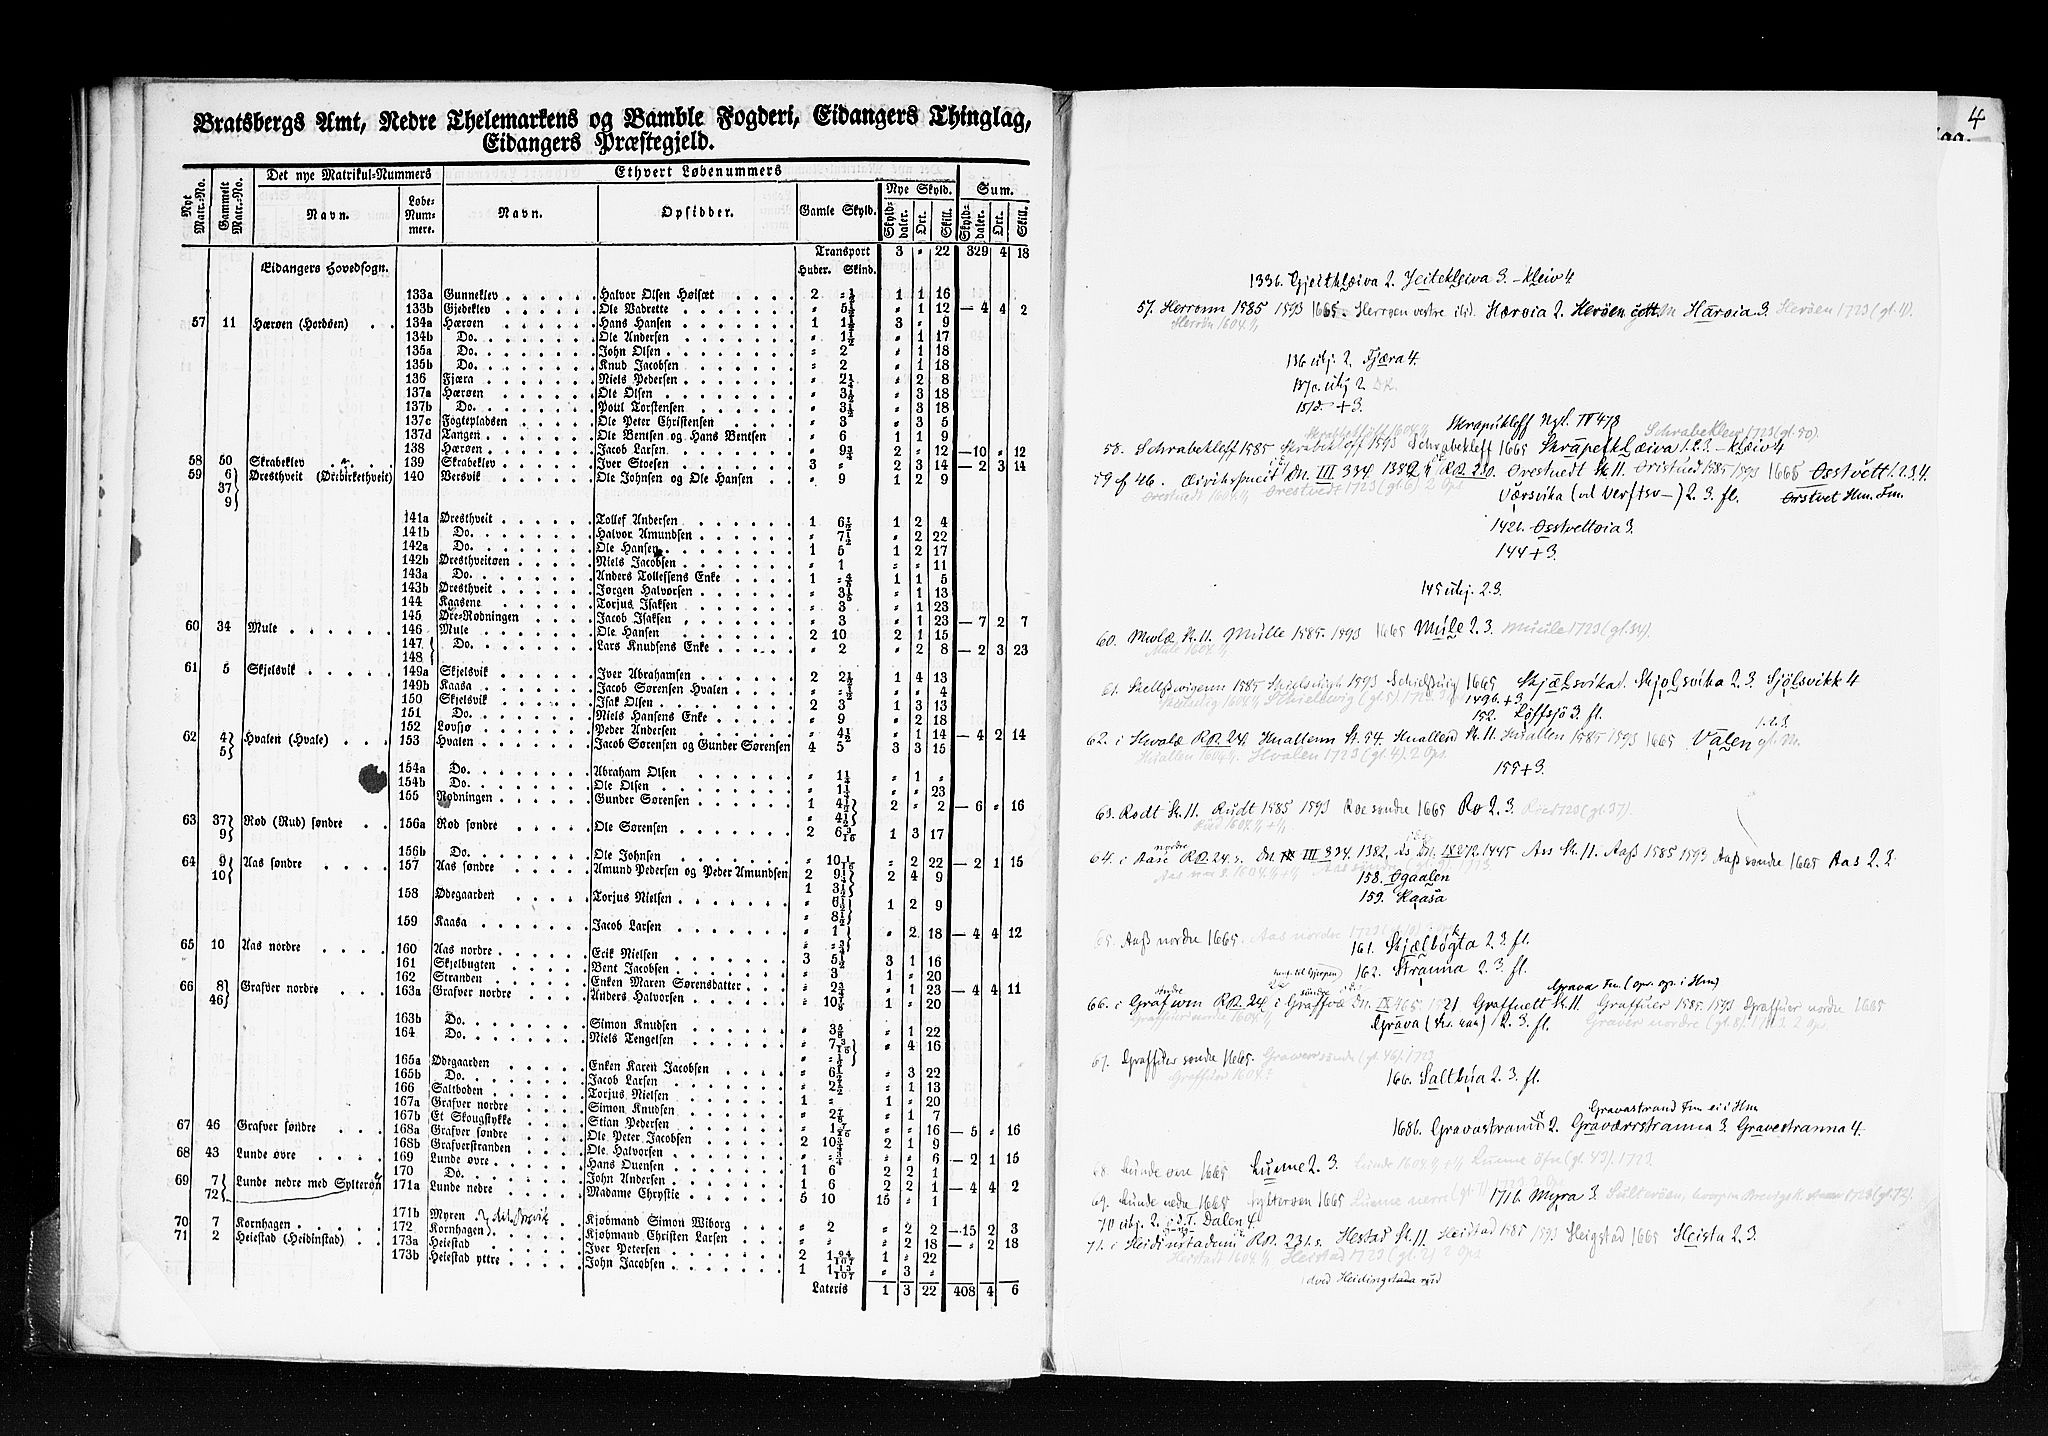 Bratsbergs Amt, Nedre Thelemarkens og Bamble Fogderi, Eidangers Thinglag,
Eidangers Præstegjeld.
Nye Matr.-No. Gammelt Matr.-No. Det nye Matrikul-Nummers Ethvert Løbenummers
Navn. Løbe-Num-mere. Navn. Opsidder. Gamle Skyld. Nye Skyld. Sum.
Skyld-daler. Ort. Skill. Skyld-daler. Ort. Skill.
Transport 3 " 22 329 4 18
Eidangers Hovedsogn. Huder. Skind.
133a Gunneklev Halvor Olsen Holsæt 2 " ½ 1 1 16
133b Gjedeklev Ole Vadrette " 5½ " 1 12 — 4 4 2
57 11 Hærøen (Herdøen) 134a Hærøen Hans Hansen 1 1½ 3 " 9
134b Do. Ole Andersen " 1½ " 1 17
135a Do. John Olsen " 2 " 1 18
135b Do. Knud Jacobsen " 2 " 1 18
136 Fjæra Niels Pedersen " 2¼ " 2 8
137a Hærøen Ole Olsen " 3½ " 3 18
137b Do. Poul Torstensen " 3½ " 3 18
137c Fogtepladsen Ole Peter Christensen " 3 " 3 5
137d Tangen Ole Bentsen og Hans Bentsen " 6 1 1 9
138 Hærøen Jacob Larsen " 9¾ 2 " 12 — 10 " 12
58 50 Skrabeklev 139 Skrabeklev Iver Stoesen 3 " 2 3 14 — 2 3 14
59 6 Øresthveit (Ørebirkethveit) 140 Versvik Ole Johnsen og Ole Hansen " 9 1 2 9
37
9
141a Øresthveit Tollef Andersen 1 6½ 1 2 4
141b Do. Halvor Amundsen " 7½ " 2 22
142a Do. Ole Hansen 1 5 1 2 17
142b Øresthveitøen Niels Jacobsen " 1 " " 11
143a Do. Anders Tollefsens Enke 1 1 1 5
143b Øresthveit Jørgen Halvorsen " " 1 13
144 Kaasene Torjus Isaksen " 3 " 1 23
145 Øre-Rødningen Jacob Isaksen " 3 " 1 23 — 7 2 7
60 34 Mule 146 Mule Ole Hansen 2 10 2 1 15
147 Do. Lars Knudsens Enke " 2 " 2 8 — 2 3 23
148
61 5 Skjelsvik 149a Skjelsvik Iver Abrahamsen 2 2½ 1 4 13
149b Kaasa Jacob Sørensen Hvalen " " ½ " " 4
150 Skjelsvik Isak Olsen 2 3 1 3 13
151 Do. Niels Hansens Enke " 9 " 2 18
152 Lovsjø Peder Andersen " 4½ " 1 14 — 4 2 14
62 4 Hvalen (Hvale) 153 Hvalen Jacob Sørensen og Gunder Sørensen 4 5 3 3 15
5
154a Do. Abraham Olsen " 1¼ " 1 "
154b Do. Ole Olsen " 1¼ " " 23
155 Rødningen Gunder Sørensen 1 4½ 2 " 2 — 6 " 16
" 4½
63 37 Rød (Rud) søndre 156a Rød søndre Ole Sørensen 2 6 3/16 1 3 17
9
156b Do. Ole Johnsen " 10 1/16 " 2 22 — 2 1 15
64 9 Aas søndre 157 Aas søndre Amund Pedersen og Peder Amundsen 2 9¼ 2 4 9
10
1 3½
158 Ødegaarden Torjus Nielsen " 1 2 9
" 8½
159 Kaasa Jacob Larsen " 1 " 2 18 — 4 4 12
65 10 Aas nordre 160 Aas nordre Erik Nielsen 3 5½ 3 1 16
161 Skjelbugten Bent Jacobsen " 3 1 " 20
162 Stranden Enken Maren Sørensdatter " 2¾ " 1 23 — 4 4 11
66 8 Grafver nordre 163a Grafver nordre Anders Halvorsen " 10⅞ 1 " 20
46
163b Do. Simon Knudsen " 3⅝ " 1 22
164 Do. Niels Tengelsen " 7 3/16 " 4 16
165a Ødegaarden Enken Karen Jacobsen " 6½ " 3 22
165b Do. Jacob Larsen " 2½ " 1 13
166 Saltboden Torjus Nielsen 1 " 1 " 20
167a Grafver nordre Simon Knudsen " 2⅞ " 1 7
167b Et Skougstykke Stian Pedersen " " " 16 — 5 " 16
67 46 Grafver søndre 168a Grafver søndre Ole Peter Jacobsen 2 10¾ 2 1 9
168b Grafverstranden Ole Halvorsen " " ¾ " " 6 — 2 1 15
68 43 Lunde øvre 169 Lunde øvre Hans Ouensen 1 6 2 2 1
170 Do. John Andersen 1 6 2 2 1 — 4 4 2
69 7 Lunde nedre med Sylterøn 171a Lunde nedre Madame Chrystie 5 10 15 " 1
72
171b Myren Kjøbmand Simon Wiborg " 2 " 2 2 — 15 2 3
70 7 Kornhagen 172 Kornhagen Kjøbmand Christen Larsen " " " 2 18 — " 2 18
71 2 Heiestad (Heidinstad) 173a Heiestad Iver Petersen 2 1 94/107 1 " 22
173b Heiestad yttre John Jacobsen 1 1 13/107 " 3 "
Lateris 1 3 22 408 4 6
4
133b. Gjeithlæiva 2. Jeitekleiva 3. –kleiv 4
57. Herronn 1585 1593 1665. Herroen vestre ibid. Hærøia 2. Herøen Hærøia 3. Herøen 1723 (gl. 11).
Herrøn 1604.
136 ubj. 2. Fjæra 4.
137c. ubj 2.
137d. +3.
Skrapukleff Ngl. IV 478
58. Schrabekleff 1585 Skrabekleff 1593 Schrabekleff 1665 Skrapeklæiva 1.2.3. –klæiv 4
Schrabeklew 1723 (gl. 50).
59 f 46. DN. III 334 1382 RB. 230. Orestuedt St. 11. Oristued 1585 1593 1665 Osstvett 1.2.3.4.
Orestuedt 1604. Orestvedt 1723 (gl. 6) 2 Ops
Værsvika (vel Verftsv–) 2. 3. fl. Orstvet Hm. Fm.
142b. Osstvettøia 3.
144 + 3.
145 ubj. 2.3.
60. Mwlæ St. 11. Mulle 1585. 1593 1665 Mule 2.3. Muule 1723 (gl. 34).
Mule 1604.
61. Skelssvigenn 1585 1593 1665 Skjælsvika 1. Skjolsvika 2.3. Sjølsvikk 4
149b. + 3.
152. Løffsjø 3. fl.
62. i Hwalæ RB. 24. Hualenn St. 94. Hualland St. 11. Huallen 1585 1593 1665 Valen
1.2.3.
Huallen 1604. Hvalen 1723 (gl. 4). 2 Ops.
155 + 3.
63. Rødt St. 11. Rudt 1585 1593 Røe søndre 1665 Rø 2.3.
Rud 1604.
64. i Aase RB. 24. DN. III 334. 1382, 1445 Ass St. 11. Aass 1585 1593 Aass søndre 1665 Aas 2.3.
158. Øgaalen
159. Kaasa
65. Aass nordre 1665. Aas nordre 1723
161. Skjælbogta 2.3. fl.
162. Stranna 2.3. fl.
Grava Fm.
66. i Grafwin RB. 24 i Graffwæ DN. IX 465. Graffuett St. 11. Graffuer 1585. 1593 Graffuer nordre 1665
Grava 2.3. fl. Graver nordre (gl. 8). 1723. 2 Ops
67. Graffuer søndre 1665. Grawer søndre (gl. 46). 1723
Graffuer 1604.
166. Saltbua 2.3. fl.
Gravastrand Fm ei i Hm
168b. Gravastrann 2. Graværrstranna 3. Gravestranna 4.
68. Lunde øvre 1665 Lunne 2.3. Lunde 1604. Lunne øfre (gl. 43). 1723.
69. Lunde nedre 1665 Sylterøen 1665 171b. Myra 3.
70 ubj. 2. Dalen 4.
71. i Heidinstadum RB. 231. Hestad St. 11 Heistad 1585 1593 Heigstad 1665 Heista 2.3.
Heistad 1604. Heistad 1723 (gl. 2) 2 Ops